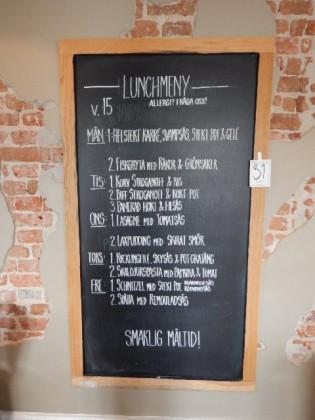 LUNCHMENY
ALLERGI? FRÅGA OSS!
V. 15
MÅN: 1. HELSTEKT KARRÉ, SVAMPSÅS, STEKT POT & GELÉ
2. FISKGRYTA MED RÄKOR & GRÖNSAKER
TIS: 1. KORV STROGANOFF & RIS
2. BIFF STROGANOFF & KOKT POT
3. PANERAD HOKI & FILSÅS
ONS: 1. LASAGNE MED TOMATSÅS
2. LAXPUDDING MED SKIRAT SMÖR
TORS: 1. KYCKLINGFILÉ, SKYSÅS & POTGRATÄNG
2. SKALDJURSPASTA MED PAPRIKA & TOMAT
FRE: 1. SCHNITZEL MED STEKT POT
2. SPÄTTA MED REMOULADSÅS
SMAKLIG MÅLTID!